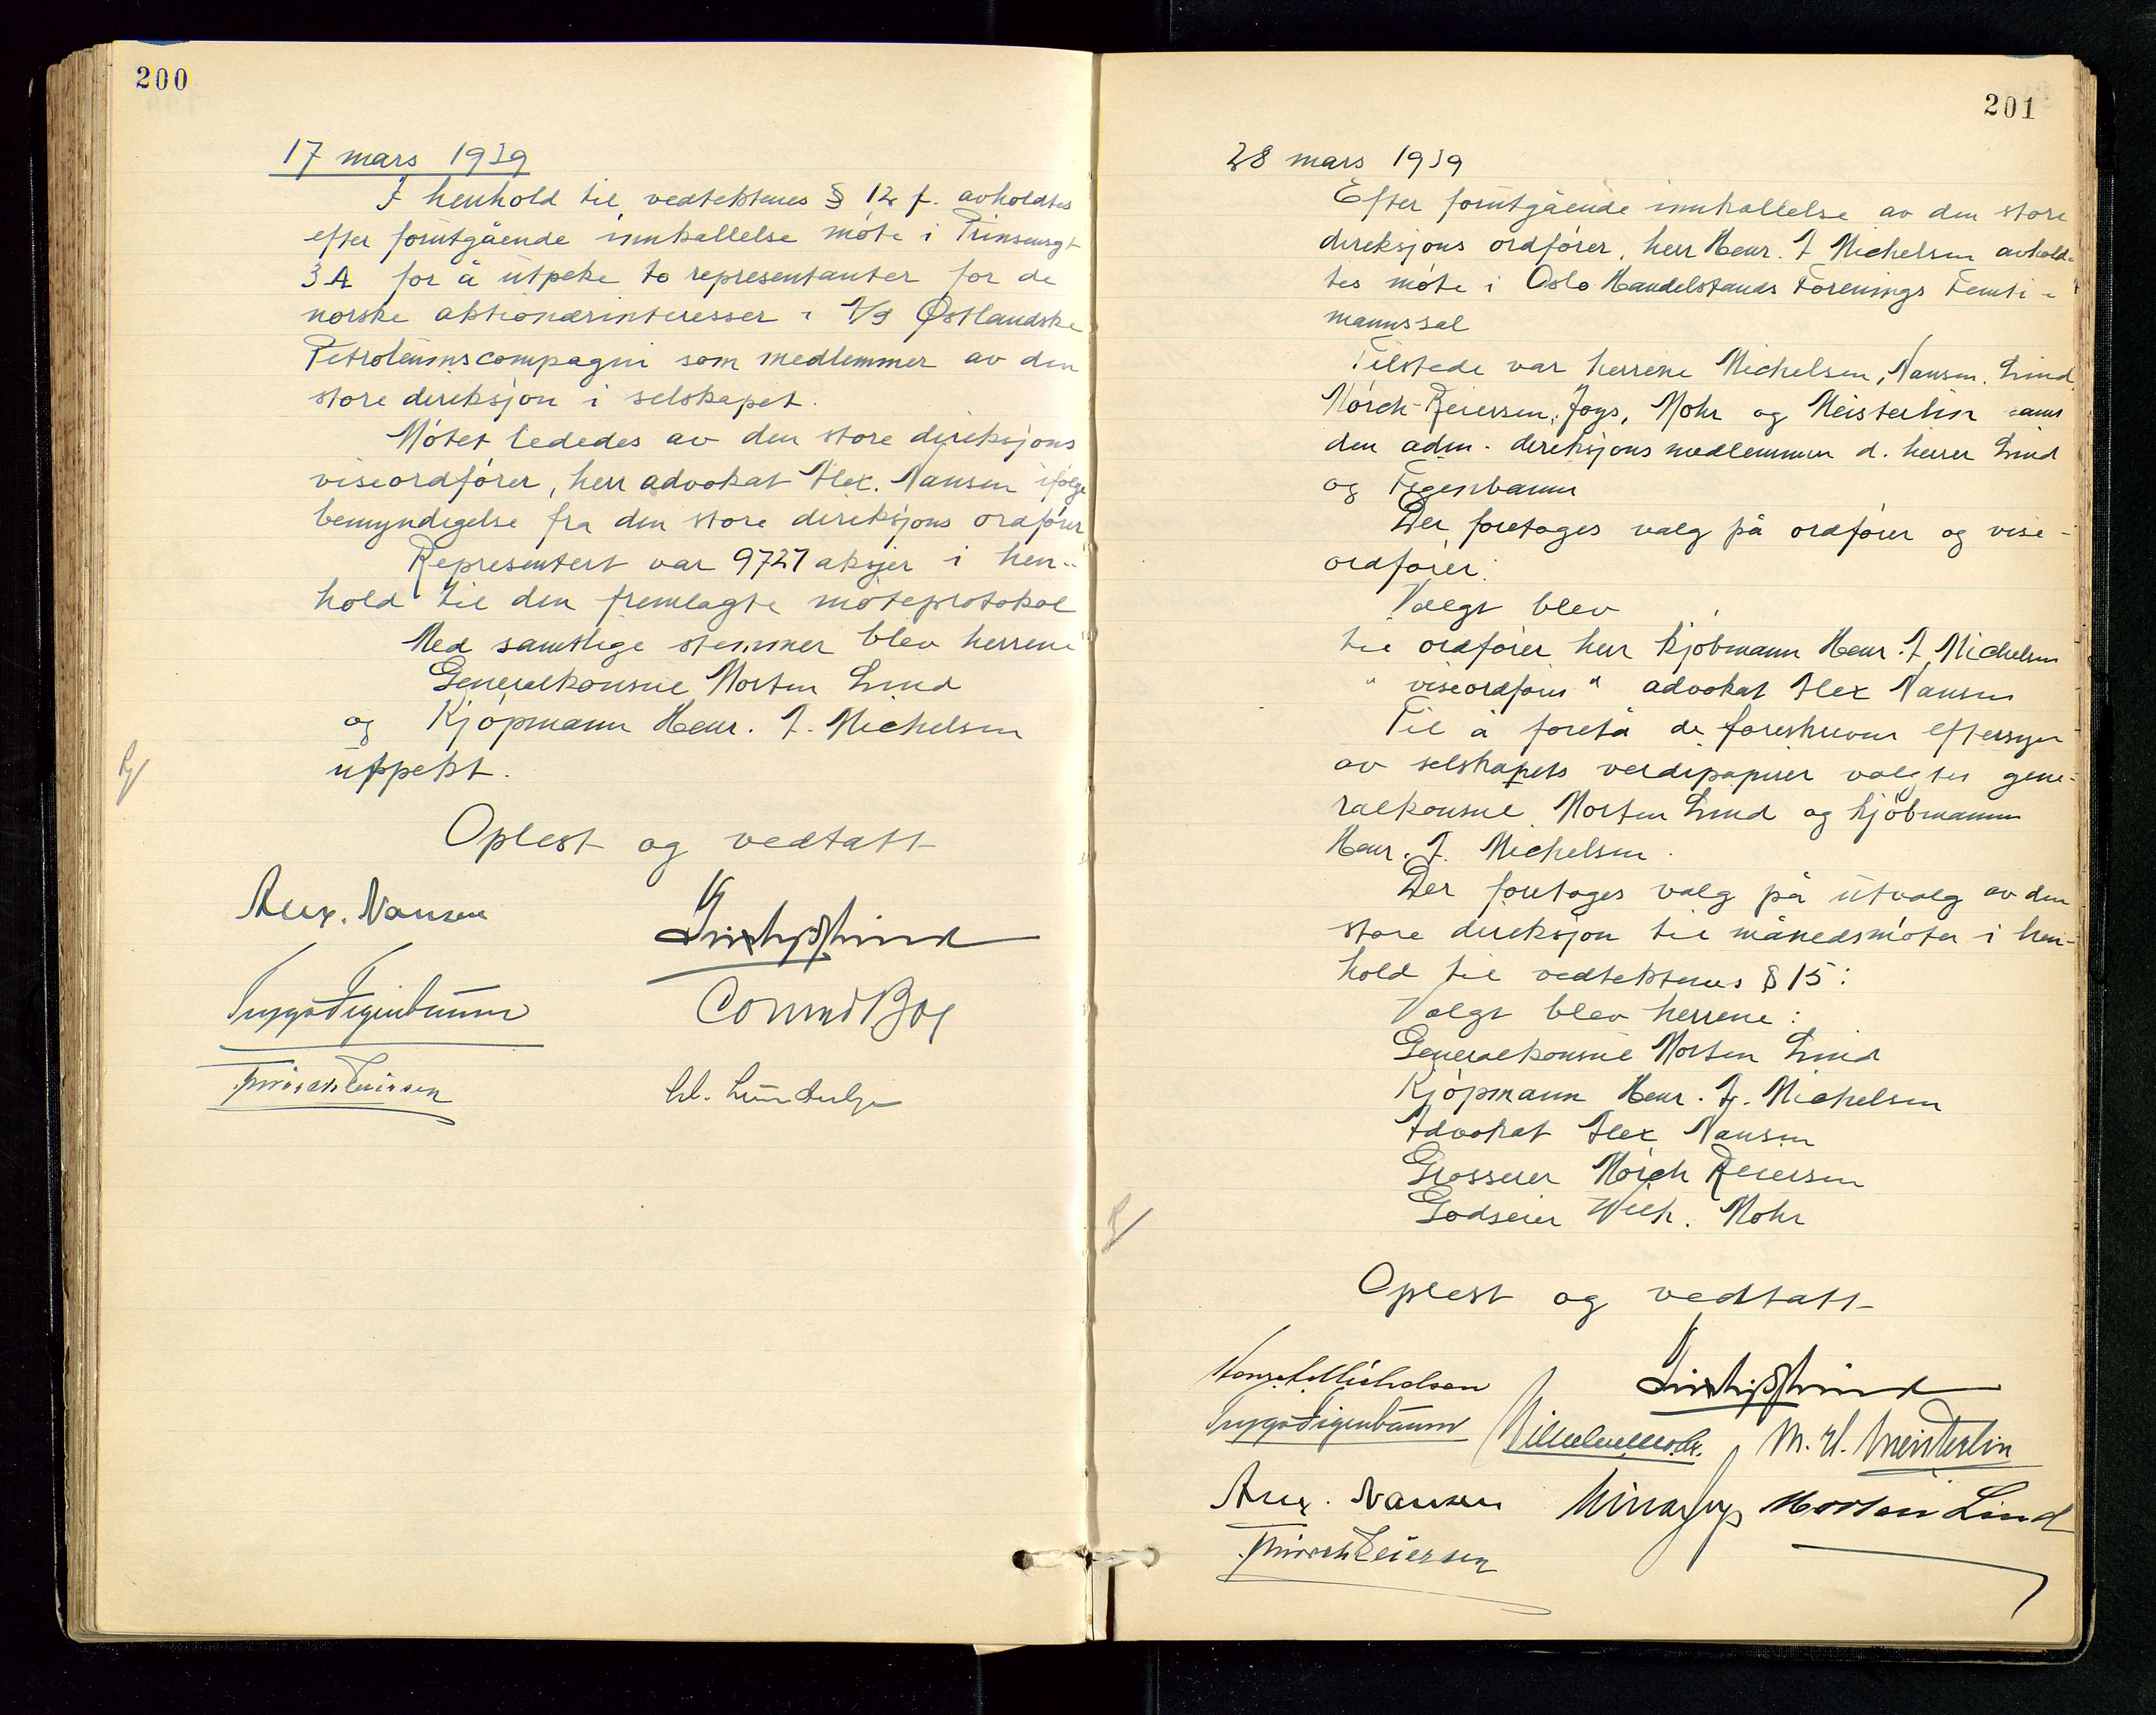 200
17 mars 1939
I henhold til vedtektenes § 12 f. avholdtes
efter forutgående innkallelse møte i Prinsensgt
3A for å utpeke to representanter for de
norske aktionærinteresser i A/S Østlandske
Petroleumscompagni som medlemmer av den
store direksjon i selskapet.
Møtet lededes av den store direksjons
viseordfører, herr advokat Alex. Nansen ifølge
bemyndigelse fra den store direksjons ordfører
Representert var 9727 aksjer i hen-
hold til den fremlagte møteprotokol
Med samtlige stemmer blev herrene
Generalkonsul Morten Lind
og Kjøpmann Henr. J. Michelsen
utpekt.
Oplest og vedtatt
Alex. Nansen
Trygve Figenbaum
Mørch Reiersen
201
28 mars 1939
Efter forutgående innkallelse av den store
direksjons ordfører, herr Henr. J Michelsen avhold-
tes møte i Oslo Handelstands Forenings Femti-
mannssal
Tilstede var herrene Michelsen, Nansen, Lind,
Mørch-Reiersen, Joys, Mohr og Meisterlin samt
den adm. direksjons medlemmer d. herrer Lind
og Figenbaum
Der foretoges valg på ordfører og vise-
ordfører:
Valgt blev
til ordfører herr kjøbmann Henr. J Michelsen
" viseordfører " advokat Alex Nansen
Til å foreta de foreskrevne eftersyn
av selskapets verdipapirer valgtes gene-
ralkonsul Morten Lind og kjøbmann
Henr. J. Michelsen.
Der foretoges valg på utvalg av den
store direksjon til månedsmøter i hen-
hold til vedtektenes § 15:
Valgt blev herrene:
Generalkonsul Morten Lind
Kjøpmann Henr. J. Michelsen
Advokat Alex Nansen
Grosserer Mørch Reiersen
Godseier Wilh. Mohr
Oplest og vedtatt
Henr. J. Michelsen
Trygve Figenbaum Wilhelm Mohr. M. H. Meisterlin
Alex. Nansen Morten Lind
Mørch Reiersen